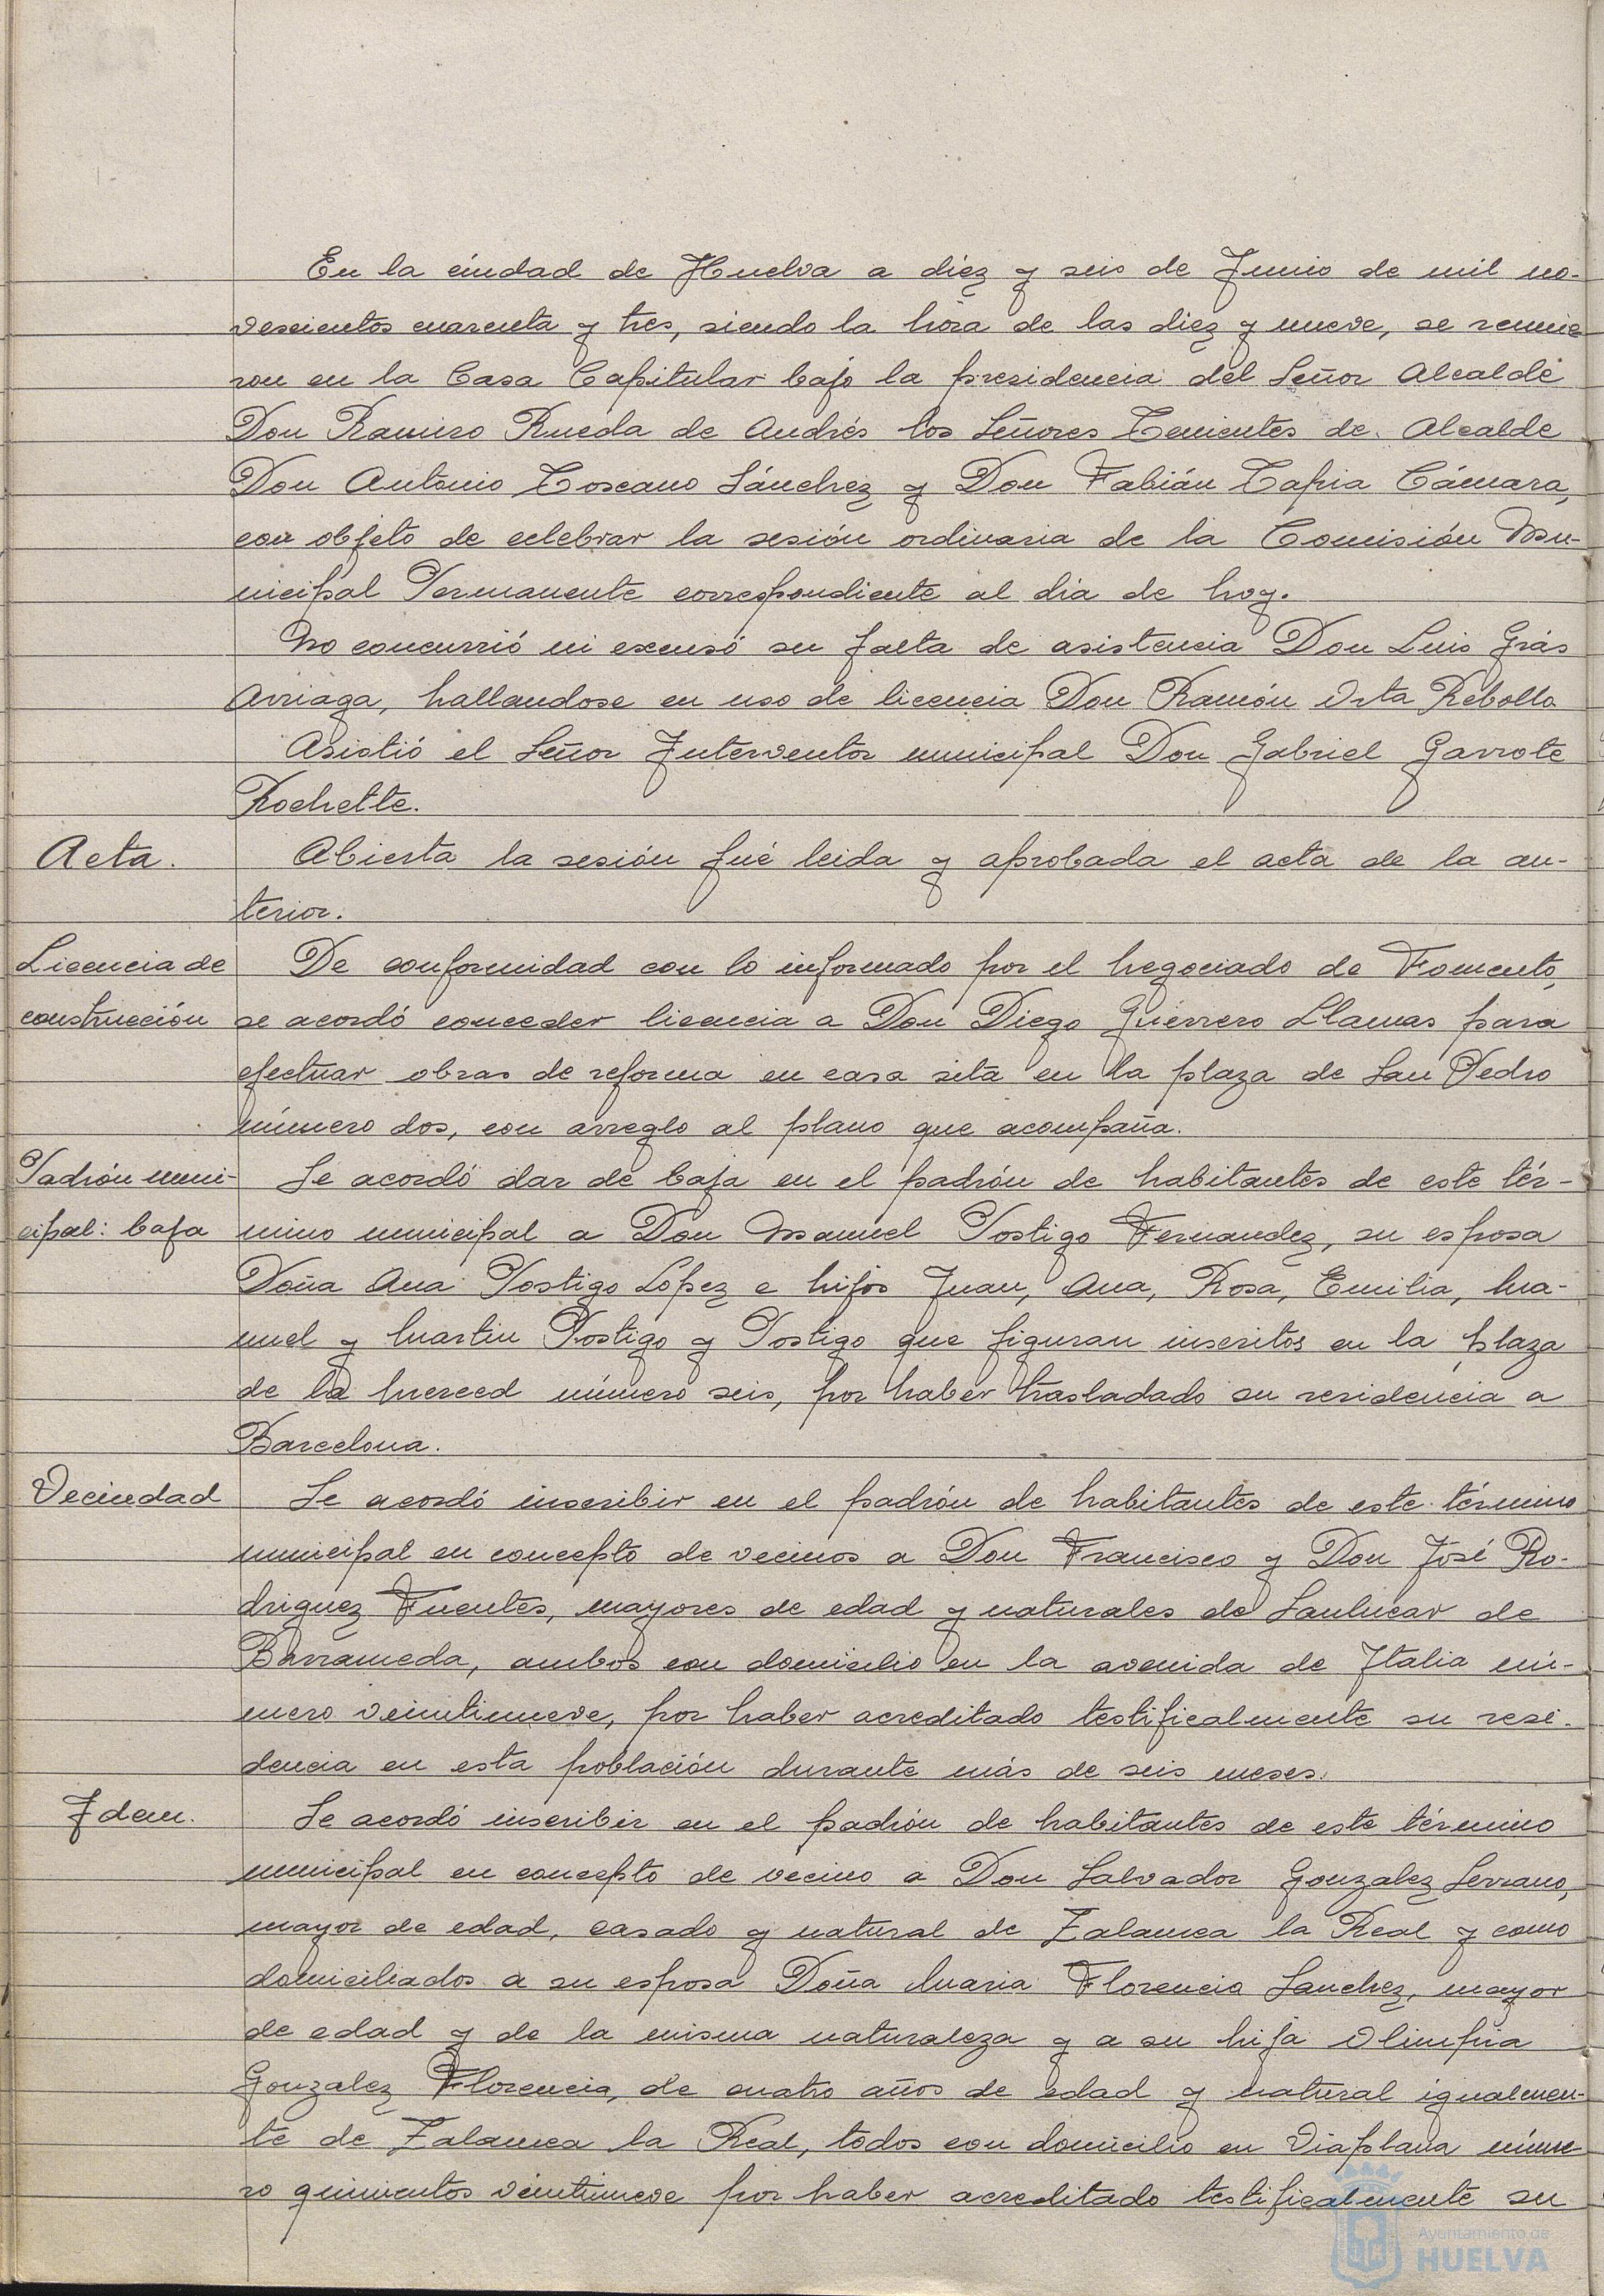 En la ciudad de Huelva a diez y seis de Junio de mil no-
vescientos cuarenta y tres, siendo la hora de las diez y nueve, se reunie
ron en la Casa Capitular bajo la presidencia del Señor Alcalde
Don Ramiro Rueda de Andrés los Señores Tenientes de Alcalde
Don Antonio Toscano Sánchez y Don Fabián Tapia Cámara,
con objeto de celebrar la sesión ordinaria de la Comisión Mu-
nicipal Permanente correspondiente al dia de hoy.
No concurrió ni excusó su falta de asistencia Don Luis Grás
Arriaga, hallandose en uso de licencia Don Ramón Orta Rebollo
Asistió el Señor Interventor municipal Don Gabriel Garrote
Rochette.
Acta.
Abierta la sesión fué leida y aprobada el acta de la an-
terior.
Licencia de
construcción
De conformidad con lo informado por el Negociado de Fomento,
se acordó conceder licencia a Don Diego Guerrero Llamas para
efectuar obras de reforma en casa sita en la plaza de San Pedro
número dos, con arreglo al plano que acompaña.
Padrón muni-
cipal: baja
Se acordó dar de baja en el padrón de habitantes de este tér-
mino municipal a Don Manuel Postigo Fernandez, su esposa
Doña Ana Postigo López e hijos Juan, Ana, Rosa, Emilia, Ma-
nuel y Martin Postigo y Postigo que figuran inscritos en la plaza
de la Merced número seis, por haber trasladado su residencia a
Barcelona.
Vecindad
Se acordó inscribir en el padrón de habitantes de este término
municipal en concepto de vecinos a Don Francisco y Don José Ro-
driguez Fuentes, mayores de edad y naturales de Sanlucar de
Barrameda, ambos con domicilio en la avenida de Italia nú-
mero veintinueve, por haber acreditado testificalmente su resi-
dencia en esta población durante más de seis meses.
Idem.
Se acordó inscribir en el padrón de habitantes de este término
municipal en concepto de vecino a Don Salvador Gonzalez Serrano,
mayor de edad, casado y natural de Zalamea la Real y como
domiciliados a su esposa Doña Maria Florencia Sanchez, mayor
de edad y de la misma naturaleza y a su hija Olimpia
Gonzalez Florencia, de cuatro años de edad y natural igualmen-
te de Zalamea la Real, todos con domicilio en Viaplana núme-
ro quinientos veintinueve por haber acreditado testificalmente su
Ayuntamiento de
HUELVA